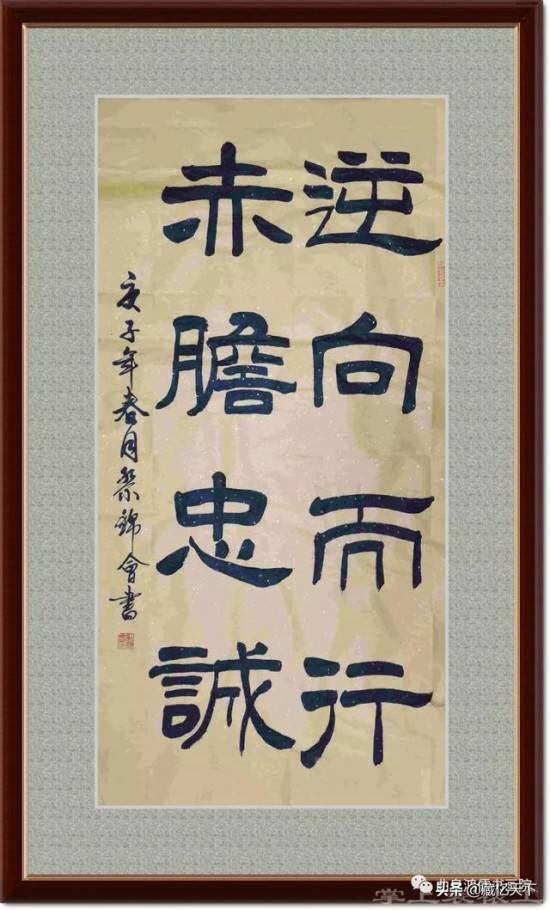 逆向而行
赤膽忠誠
庚子年春月錦會書
头条 @藏忆天下